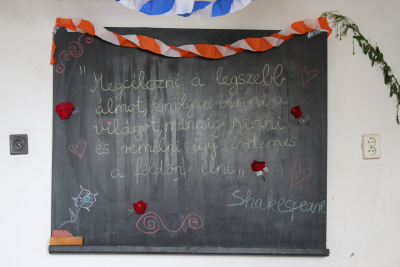 "Megélozni a legszebb
álmot, komolyan venni a
világot, mindig hinni
és remélni így érdemes
a földön élni„
Shakespeare